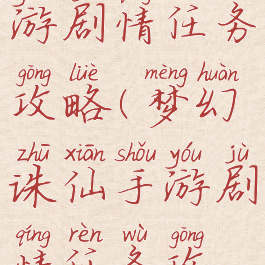 游剧情任务
gōng lüè mèng huàn
攻略(梦幻
zhū xiān shǒu yóu jù
诛仙手游剧
qíng rèn wù gōng
情任务攻